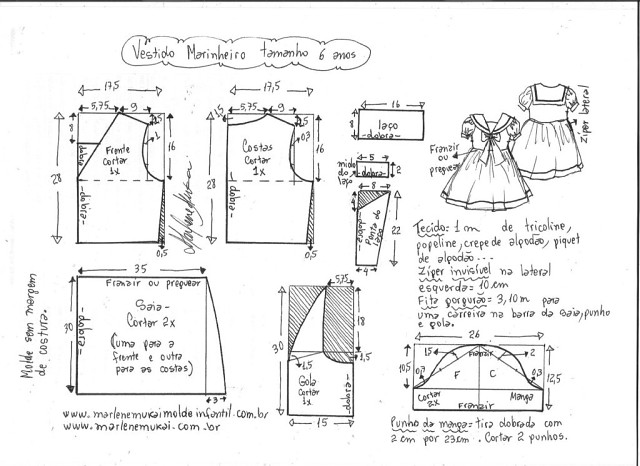 Vestido Marinheiro tamanho 6 anos
17,5
5,75
9
1,5
8
0,3
1
16
28
dobra
dobra
Frente
Cortar
1x
0,5
17,5
5,75
9
1,5
0,3
16
28
dobra
Costas
Cortar
1x
0,5
16
8
laço
dobra
5
miolo
do
laço
dobra
2
8
dobra
Ponta do
laço
22
4
Franzir
ou
preguear
Zíper lateral
Tecido= 1 m de tricoline,
popeline, crepe de algodão, piquet
de algodão...
Zíper invisível na lateral
esquerda= 10 cm
Fita gorgurão= 3,10 m para
uma carreira na barra da saia, punho
e gola.
35
Franzir ou preguear
30
dobra
Saia-
Cortar 2x
(uma para a
frente e outra
para as costas)
3
Molde sem margem
de costura.
5,75
18
30
1,5
1,5
Gola
Cortar
1x
dobra
15
26
15
Franzir
2
10,5
0,7
F
C
0,3
12,5
Cortar
2x
Manga
Franzir
www.marlenemukaimoldeinfantil.com.br
www.marlenemukai.com.br
Punho da manga= tira dobrada com
2 cm por 23 cm. Cortar 2 punhos.